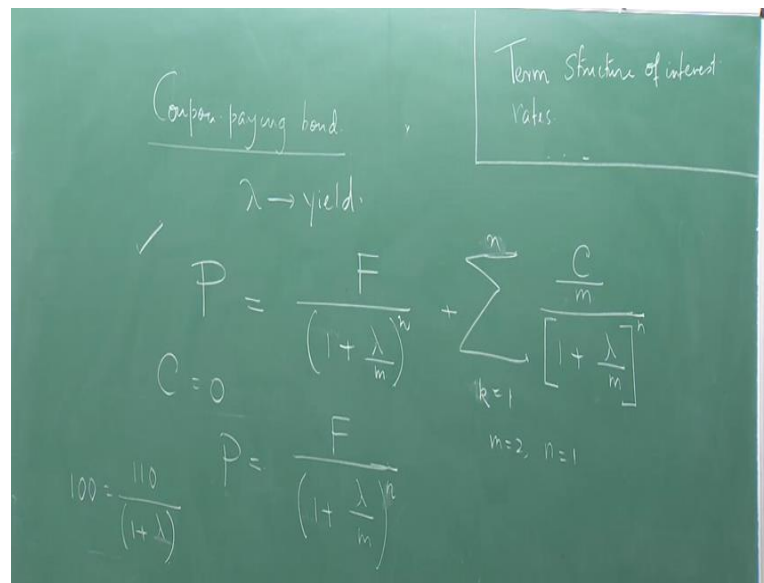 Term Structure of interest
rates.
Coupon-paying bond.
λ → yield.
✓
P = F / (1 + λ/m)^n + Σ_{k=1}^{n} (C/m) / [1 + λ/m]^n
C = 0
m=2, n=1
P = F / (1 + λ/m)^n
100 = 110 / (1 + λ)